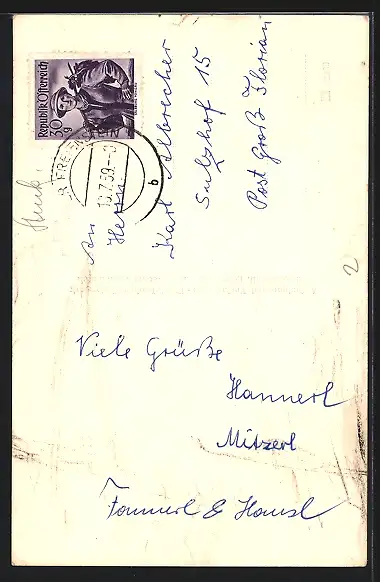 Republik Österreich
30 g
16.7.59.-8
b
An
Herrn
Karl Albrecher
Sulzhof 15
Post Groß Florian
2
Viele Grüße
Hannerl
Mitzerl
& Hansl